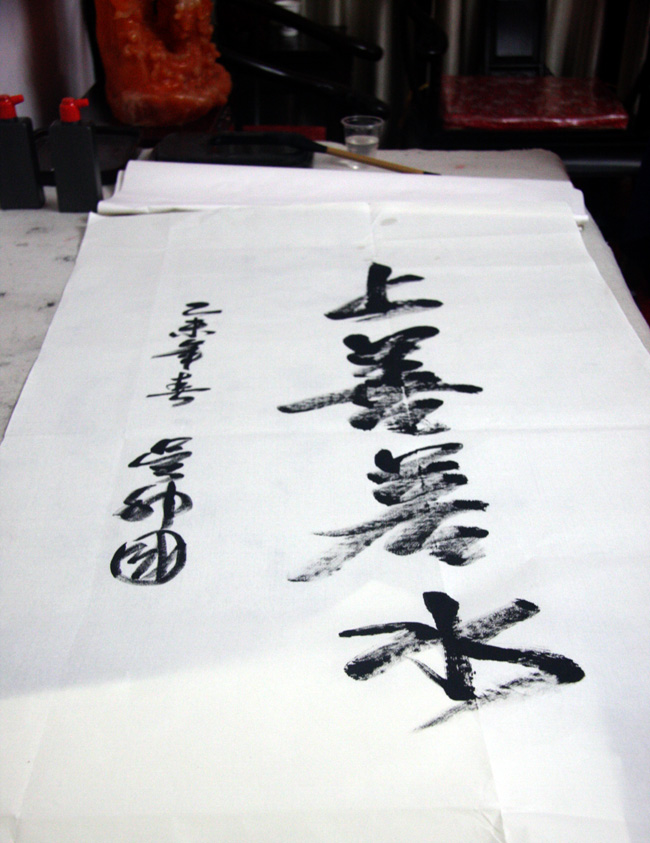 上善若水
乙未年春 吳